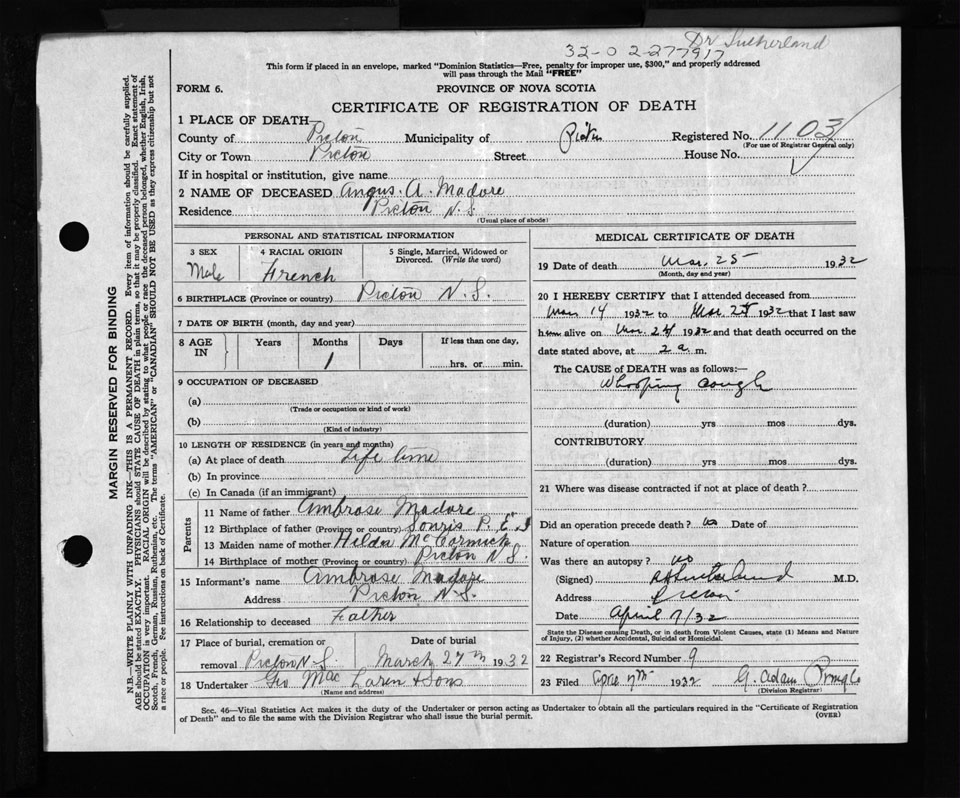 Dr Sutherland
32-02-277917
This form if placed in an envelope, marked "Dominion Statistics—Free, penalty for improper use, $300," and properly addressed
will pass through the Mail "FREE"
FORM 6. PROVINCE OF NOVA SCOTIA
CERTIFICATE OF REGISTRATION OF DEATH
1 PLACE OF DEATH—
County of Pictou Municipality of Pictou Registered No. 1103
(For use of Registrar General only)
City or Town Pictou Street House No.
If in hospital or institution, give name
2 NAME OF DECEASED Angus. A. Madore
Residence Pictou N.S.
(Usual place of abode)
PERSONAL AND STATISTICAL INFORMATION
3 SEX 4 RACIAL ORIGIN 5 Single, Married, Widowed or
Divorced. (Write the word)
Male French
6 BIRTHPLACE (Province or country) Pictou N.S.
7 DATE OF BIRTH (month, day and year)
8 AGE IN Years Months Days If less than one day,
1 hrs. or min.
9 OCCUPATION OF DECEASED
(a)
(Trade or occupation or kind of work)
(b)
(Kind of industry)
10 LENGTH OF RESIDENCE (in years and months)
(a) At place of death Life time
(b) In province
(c) In Canada (if an immigrant)
Parents
11 Name of father Ambrose Madore
12 Birthplace of father (Province or country) Souris P.E.I
13 Maiden name of mother Hilda McCormick
14 Birthplace of mother (Province or country) Pictou N.S.
15 Informant's name Ambrose Madore
Address Pictou N.S.
16 Relationship to deceased Father
17 Place of burial, cremation or Date of burial
removal Pictou N.S. March 27th 1932
18 Undertaker Geo MacLaren & Sons
(Name and address)
MEDICAL CERTIFICATE OF DEATH
19 Date of death Mar. 25 1932
(Month, day and year)
20 I HEREBY CERTIFY that I attended deceased from
Mar 14 1932 to Mar. 1932 that I last saw
him alive on Mar. 24 1932 and that death occurred on
date stated above, at 2 a m.
The CAUSE of DEATH was as follows:—
Whooping cough
(duration) yrs mos dys.
CONTRIBUTORY
(duration) yrs. mos. dys.
21 Where was disease contracted if not at place of death?
Did an operation precede death? no Date of
Nature of operation
Was there an autopsy? no
(Signed) Sutherland M.D.
Address Pictou
Date April 7/32
State the Disease causing Death, or in death from Violent Causes, state (1) Means and Nature
of Injury, (2) whether Accidental, Suicidal or Homicidal.
22 Registrar's Record Number 9
23 Filed 7th 1932 G. Adam
(Division Registrar)
Sec. 46—Vital Statistics Act makes it the duty of the Undertaker or person acting as Undertaker to obtain all the particulars required in the "Certificate of Registration
of Death" and to file the same with the Division Registrar who shall issue the burial permit. (OVER)
MARGIN RESERVED FOR BINDING
N.B.—WRITE PLAINLY WITH UNFADING INK—THIS IS A PERMANENT RECORD. Every item of information should be carefully supplied.
AGE should be stated EXACTLY. PHYSICIANS should state CAUSE OF DEATH in plain terms, so that it may be properly classified. Exact statement of
OCCUPATION is very important. RACIAL ORIGIN will be described by stating to what people or race the deceased person belonged, whether English, Irish,
Scotch, French, German, Russian, Ruthenian, etc. The terms "AMERICAN" or "CANADIAN" SHOULD NOT BE USED as they express citizenship but not
a race or people. Fee instructions on back of Certificate.